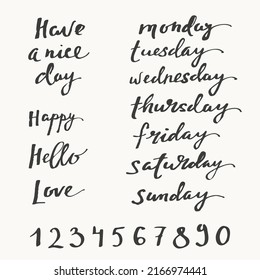 Have
a nice
day
Happy
Hello
Love
monday
tuesday
wednesday
thursday
friday
saturday
sunday
1 2 3 4 5 6 7 8 9 0
shutterstock.com · 2166974441